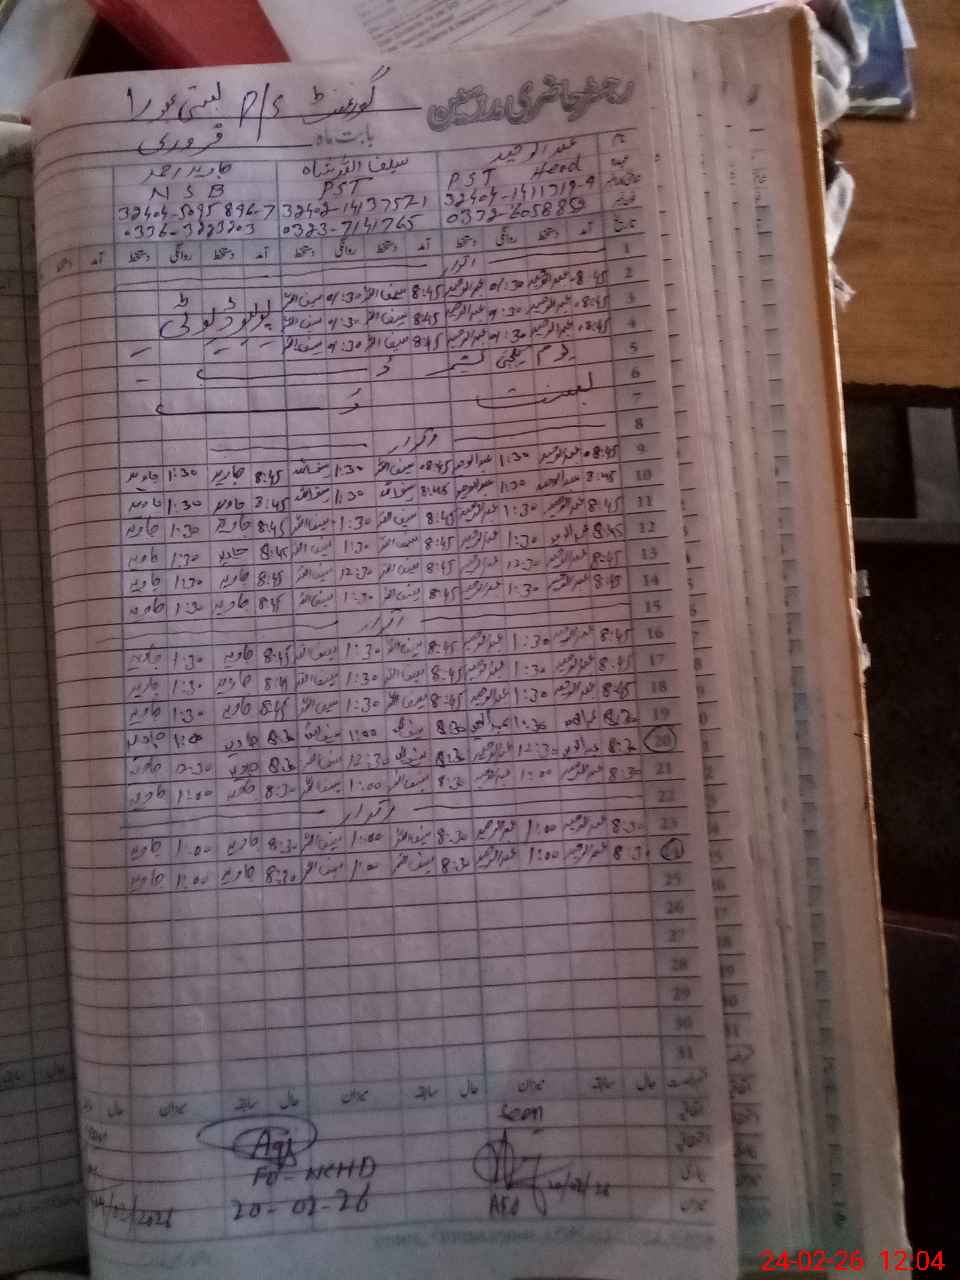 رجسٹر حاضری مدرسین
گورنمنٹ P/S بستی
بابت ماہ فروری
نام عبدالوحید سیف اللہ شاہ جاوید احمد
عہدہ PST Head PST NSB
32404-1411719-9 32402-1413757-1 32404-5095896-7
0323-7141765
تاریخ آمد دستخط روانگی دستخط آمد دستخط روانگی دستخط آمد دستخط روانگی دستخط آمد دستخط
1 اتوار
2 08:45 عبدالوحید 01:30 عبدالوحید 8:45 سیف اللہ 01:30 سیف اللہ
3 08:45 عبدالوحید 01:30 عبدالوحید 8:45 سیف اللہ 1:30 سیف اللہ پولیو ڈیوٹی
4 08:45 عبدالوحید 01:30 عبدالوحید 8:45 سیف اللہ 1:30 سیف اللہ
5 یوم یکجہتی کشمیر
6
7 بسنت
8 اتوار
9 08:45 عبدالوحید 1:30 عبدالوحید 08:45 سیف اللہ 1:30 سیف اللہ 8:45 جاوید 1:30 جاوید
10 8:45 عبدالوحید 1:30 عبدالوحید 8:45 سیف اللہ 1:30 سیف اللہ 8:45 جاوید 1:30 جاوید
11 8:45 عبدالوحید 1:30 عبدالوحید 8:45 سیف اللہ 1:30 سیف اللہ 8:45 جاوید 1:30 جاوید
12 8:45 عبدالوحید 1:30 عبدالوحید 8:45 سیف اللہ 1:30 سیف اللہ 8:45 جاوید 1:30 جاوید
13 8:45 عبدالوحید 12:30 عبدالوحید 8:45 سیف اللہ 12:30 سیف اللہ 8:45 جاوید 1:30 جاوید
14 8:45 عبدالوحید 1:30 عبدالوحید 8:45 سیف اللہ 1:30 سیف اللہ 8:45 جاوید 1:30 جاوید
15 اتوار
16 8:45 عبدالوحید 1:30 عبدالوحید 8:45 سیف اللہ 1:30 سیف اللہ 8:45 جاوید 1:30 جاوید
17 8:45 عبدالوحید 1:30 عبدالوحید 8:45 سیف اللہ 1:30 سیف اللہ 8:45 جاوید 1:30 جاوید
18 8:45 عبدالوحید 1:30 عبدالوحید 8:45 سیف اللہ 1:30 سیف اللہ 8:45 جاوید 1:30 جاوید
19 8:30 عبدالوحید 1:30 عبدالوحید 8:30 سیف اللہ 1:00 سیف اللہ 8:30 جاوید 1:00 جاوید
20 8:30 عبدالوحید 12:30 عبدالوحید 8:30 سیف اللہ 12:30 سیف اللہ 8:30 جاوید 12:30 جاوید
21 8:30 عبدالوحید 1:00 عبدالوحید 8:30 سیف اللہ 1:00 سیف اللہ 8:30 جاوید 1:00 جاوید
22 اتوار
23 8:30 عبدالوحید 1:00 عبدالوحید 8:30 سیف اللہ 1:00 سیف اللہ 8:30 جاوید 1:00 جاوید
8:30 عبدالوحید 1:00 عبدالوحید 8:30 سیف اللہ 1:00 سیف اللہ 8:30 جاوید 1:00 جاوید
25
26
27
28
29
30
31
حال سابقہ میزان حال سابقہ میزان حال سابقہ میزان حال
Seen
20/02/26
AEO
FO-NCHD
20-02-26
24-02-26 12:04